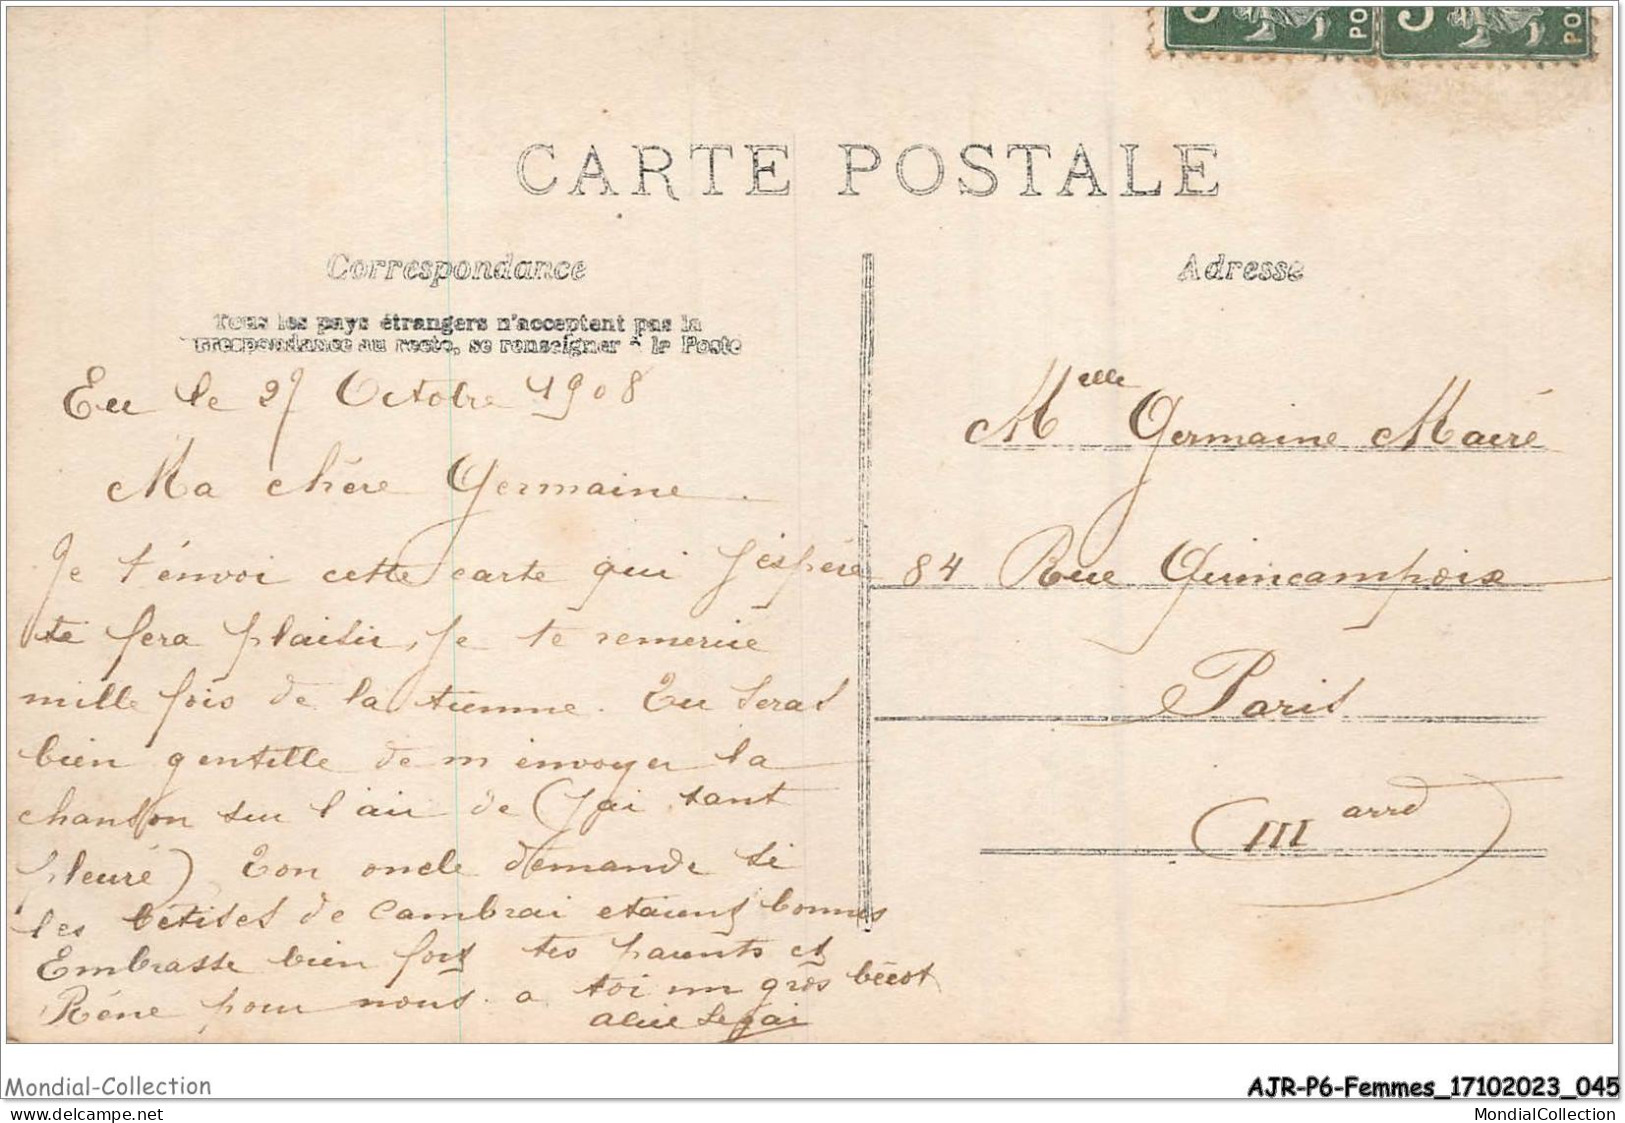 CARTE POSTALE
Correspondance
Adresse
Tous les pays étrangers n'acceptent pas la
correspondance au recto, se renseigner à la Poste
Eu le 27 Octobre 1908
Ma chére Germaine.
Je t'énvoi cette carte qui j'éspére
te fera plaisir, je te remercie
mille fois de la tienne. Tu seras
bien gentille de m'envoyer la
chanson sur l'air de (J'ai tant
pleuré) Ton oncle demande si
les bétises de Cambrai etaient bonnes
Embrasse bien fort tes parents et
Réne pour nous a toi un gros bécot
Alice
Melle Germaine Mairé
84 Rue Quincampoix
Paris
(III arrd)
Mondial-Collection
AJR-P6-Femmes_17102023_045
delcampe.net
MondialCollection